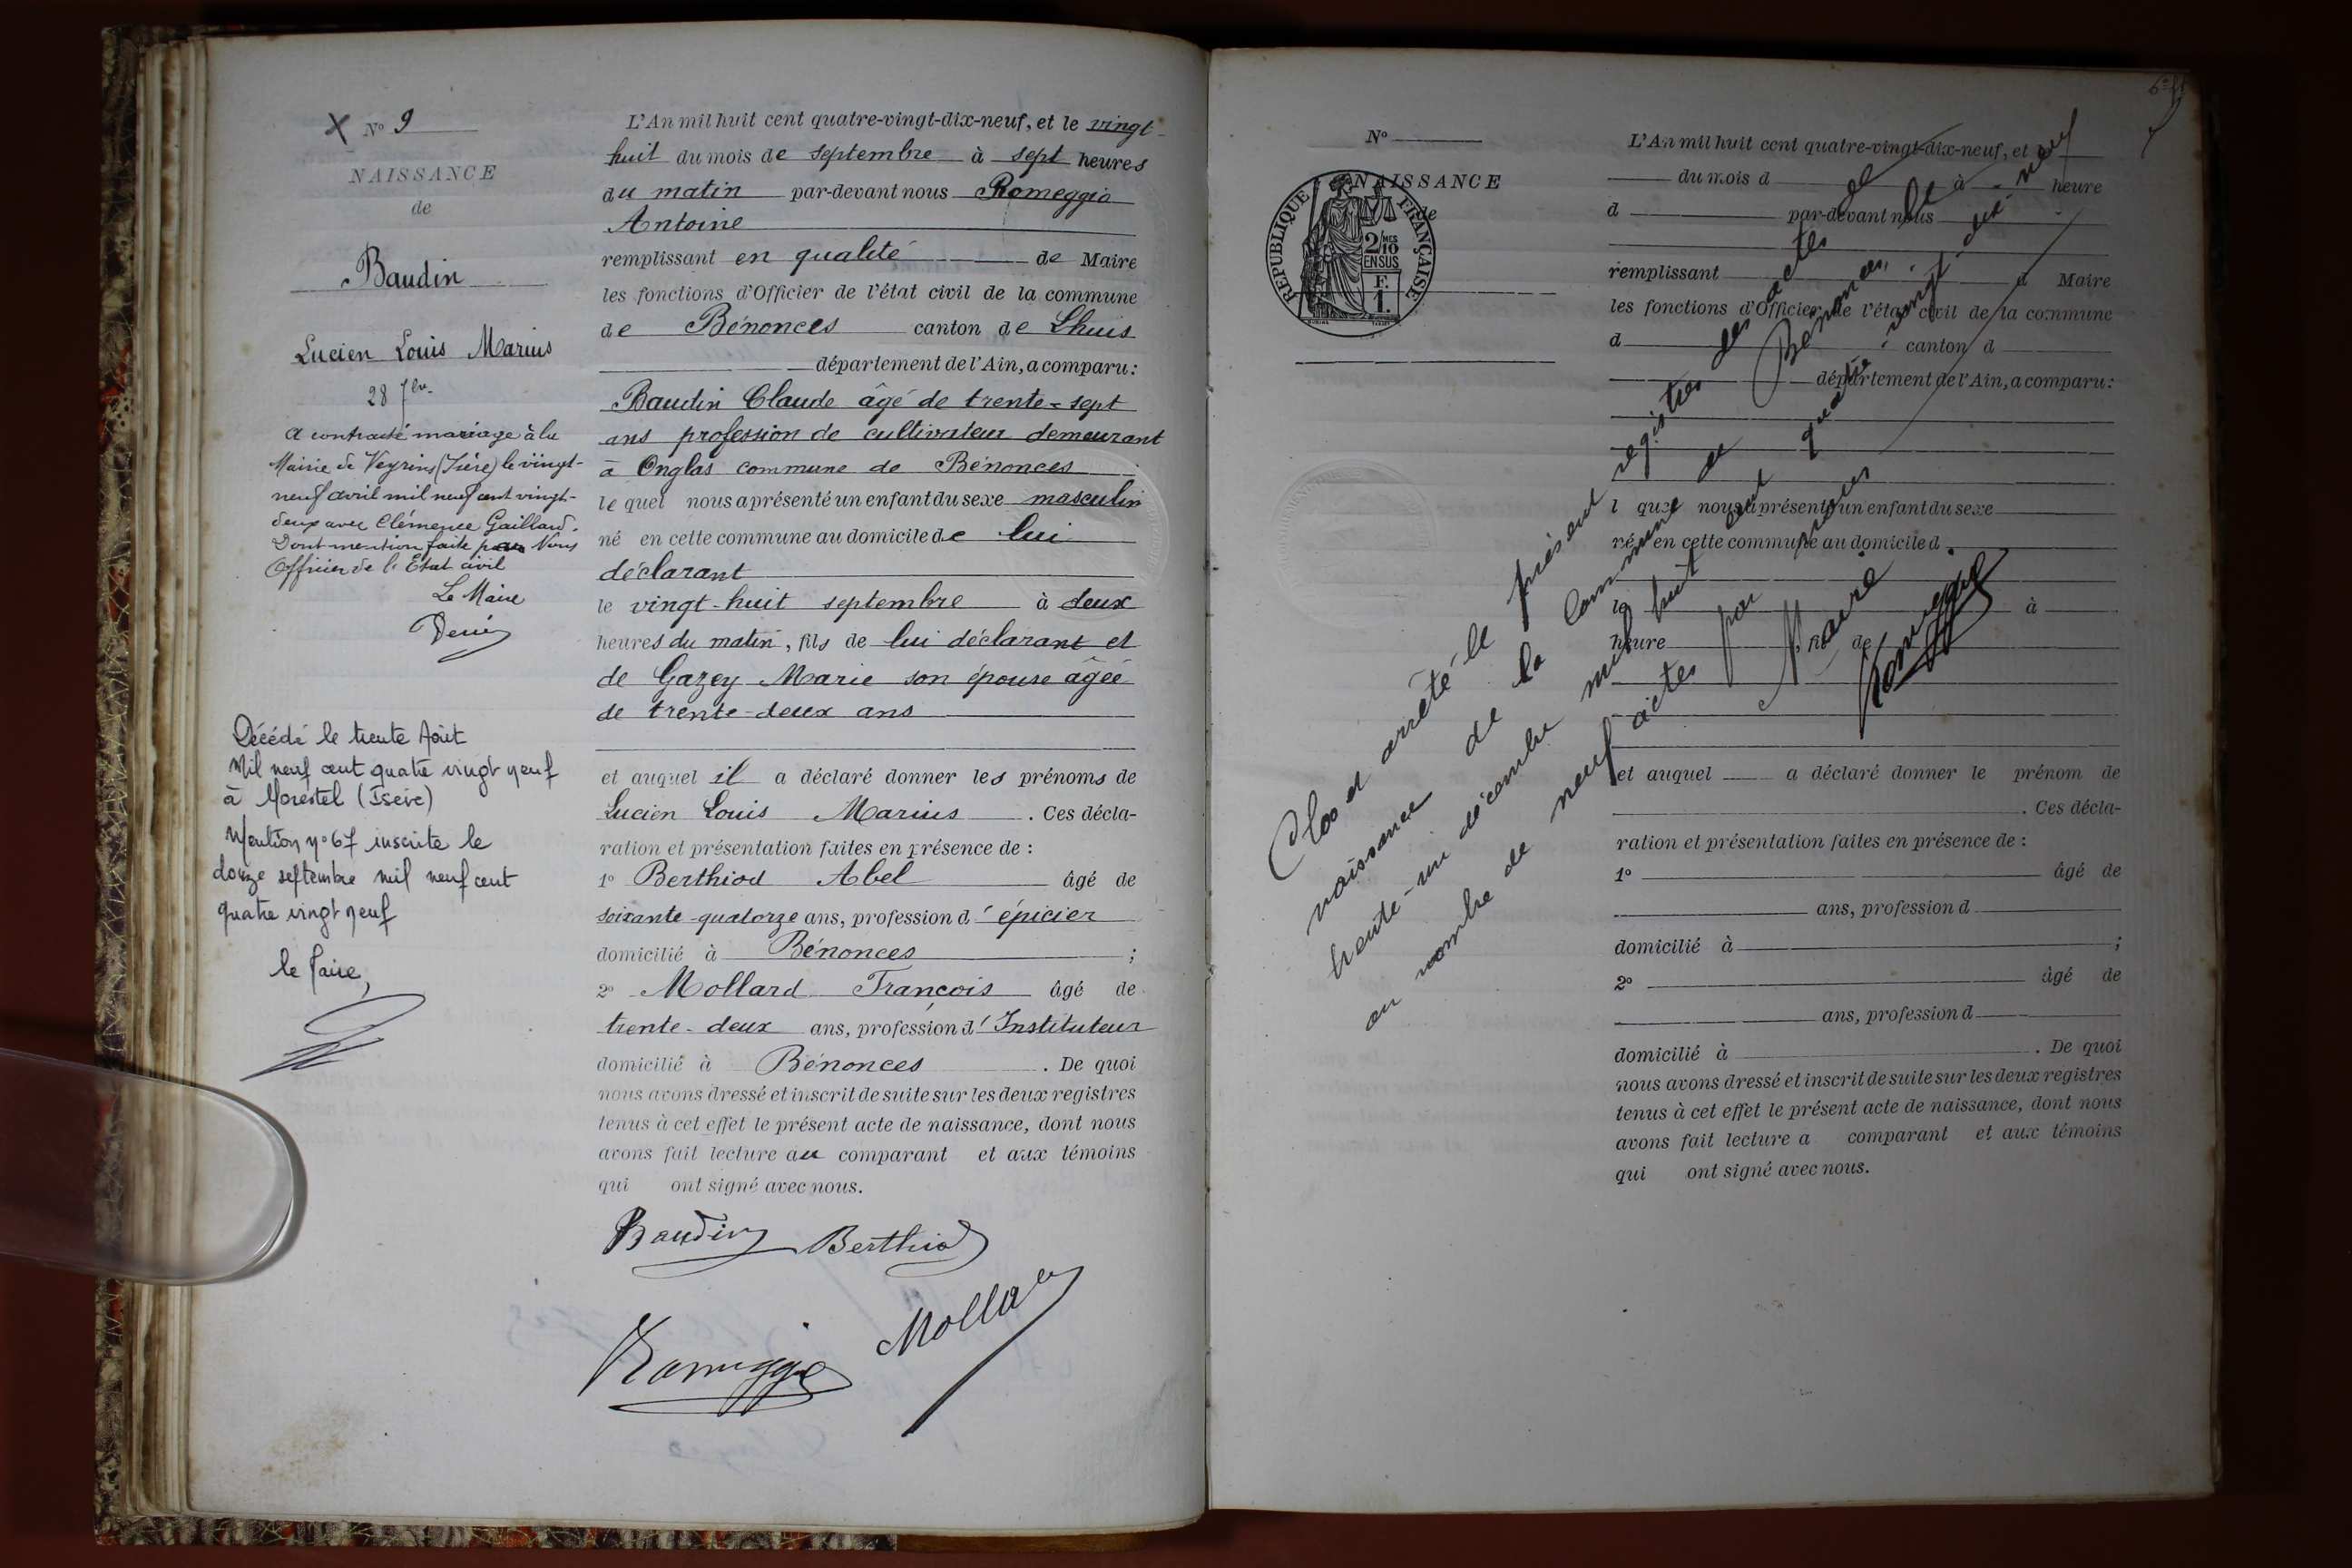 X N° 9
NAISSANCE
de
Baudin
Lucien Louis Marius
28 7bre
a contracté mariage à la
Mairie de Veyrins (Isère) le vingt-
neuf avril mil neuf cent vingt-
deux avec Clémence Gaillard.
Dont mention faite par Nous
Officier de l'Etat civil
Le Maire
Décédé le trente Août
Mil neuf cent quatre vingt neuf
à Morestel (Isère)
Mention n° 67 inscrite le
douze septembre mil neuf cent
quatre vingt neuf
le Maire,
L'An mil huit cent quatre-vingt-dix-neuf, et le vingt-
huit du mois de septembre à sept heures
du matin par-devant nous Romeggio
Antoine
remplissant en qualité de Maire
les fonctions d'Officier de l'état civil de la commune
de Bénonces canton de Lhuis
département de l'Ain, a comparu:
Baudin Claude âgé de trente-sept
ans profession de cultivateur demeurant
à Onglas commune de Bénonces
le quel nous a présenté un enfant du sexe masculin
né en cette commune au domicile de lui
déclarant
le vingt-huit septembre à deux
heures du matin, fils de lui déclarant et
de Gazey Marie son épouse âgée
de trente-deux ans
et auquel il a déclaré donner les prénoms de
Lucien Louis Marius. Ces décla-
ration et présentation faites en présence de :
1° Berthiod Abel âgé de
soixante-quatorze ans, profession d'épicier
domicilié à Bénonces ;
2° Mollard François âgé de
trente-deux ans, profession d'Instituteur
domicilié à Bénonces. De quoi
nous avons dressé et inscrit de suite sur les deux registres
tenus à cet effet le présent acte de naissance, dont nous
avons fait lecture au comparant et aux témoins
qui ont signé avec nous.
Baudin Berthiod
Romeggio Mollard
N°
NAISSANCE
de
REPUBLIQUE FRANÇAISE
2/10MES
EN SUS
F.
1.
L'An mil huit cent quatre-vingt-dix-neuf, et
du mois d à heure
d par-devant nous
remplissant d Maire
les fonctions d'Officier de l'état civil de la commune
d canton d
département de l'Ain, a comparu:
l quel nous a présenté un enfant du sexe
né en cette commune au domicile d
le à
heure , fil de
et auquel a déclaré donner le prénom de
. Ces décla-
ration et présentation faites en présence de :
1° âgé de
ans, profession d
domicilié à ;
2° âgé de
ans, profession d
domicilié à . De quoi
nous avons dressé et inscrit de suite sur les deux registres
tenus à cet effet le présent acte de naissance, dont nous
avons fait lecture a comparant et aux témoins
qui ont signé avec nous.
Clos et arrêté le présent registres des actes de
naissance de la Commune de Bénonces, le
trente-un décembre mil huit cent quatre-vingt-dix-neuf
au nombre de neuf actes par nous
Maire.
Romeggio